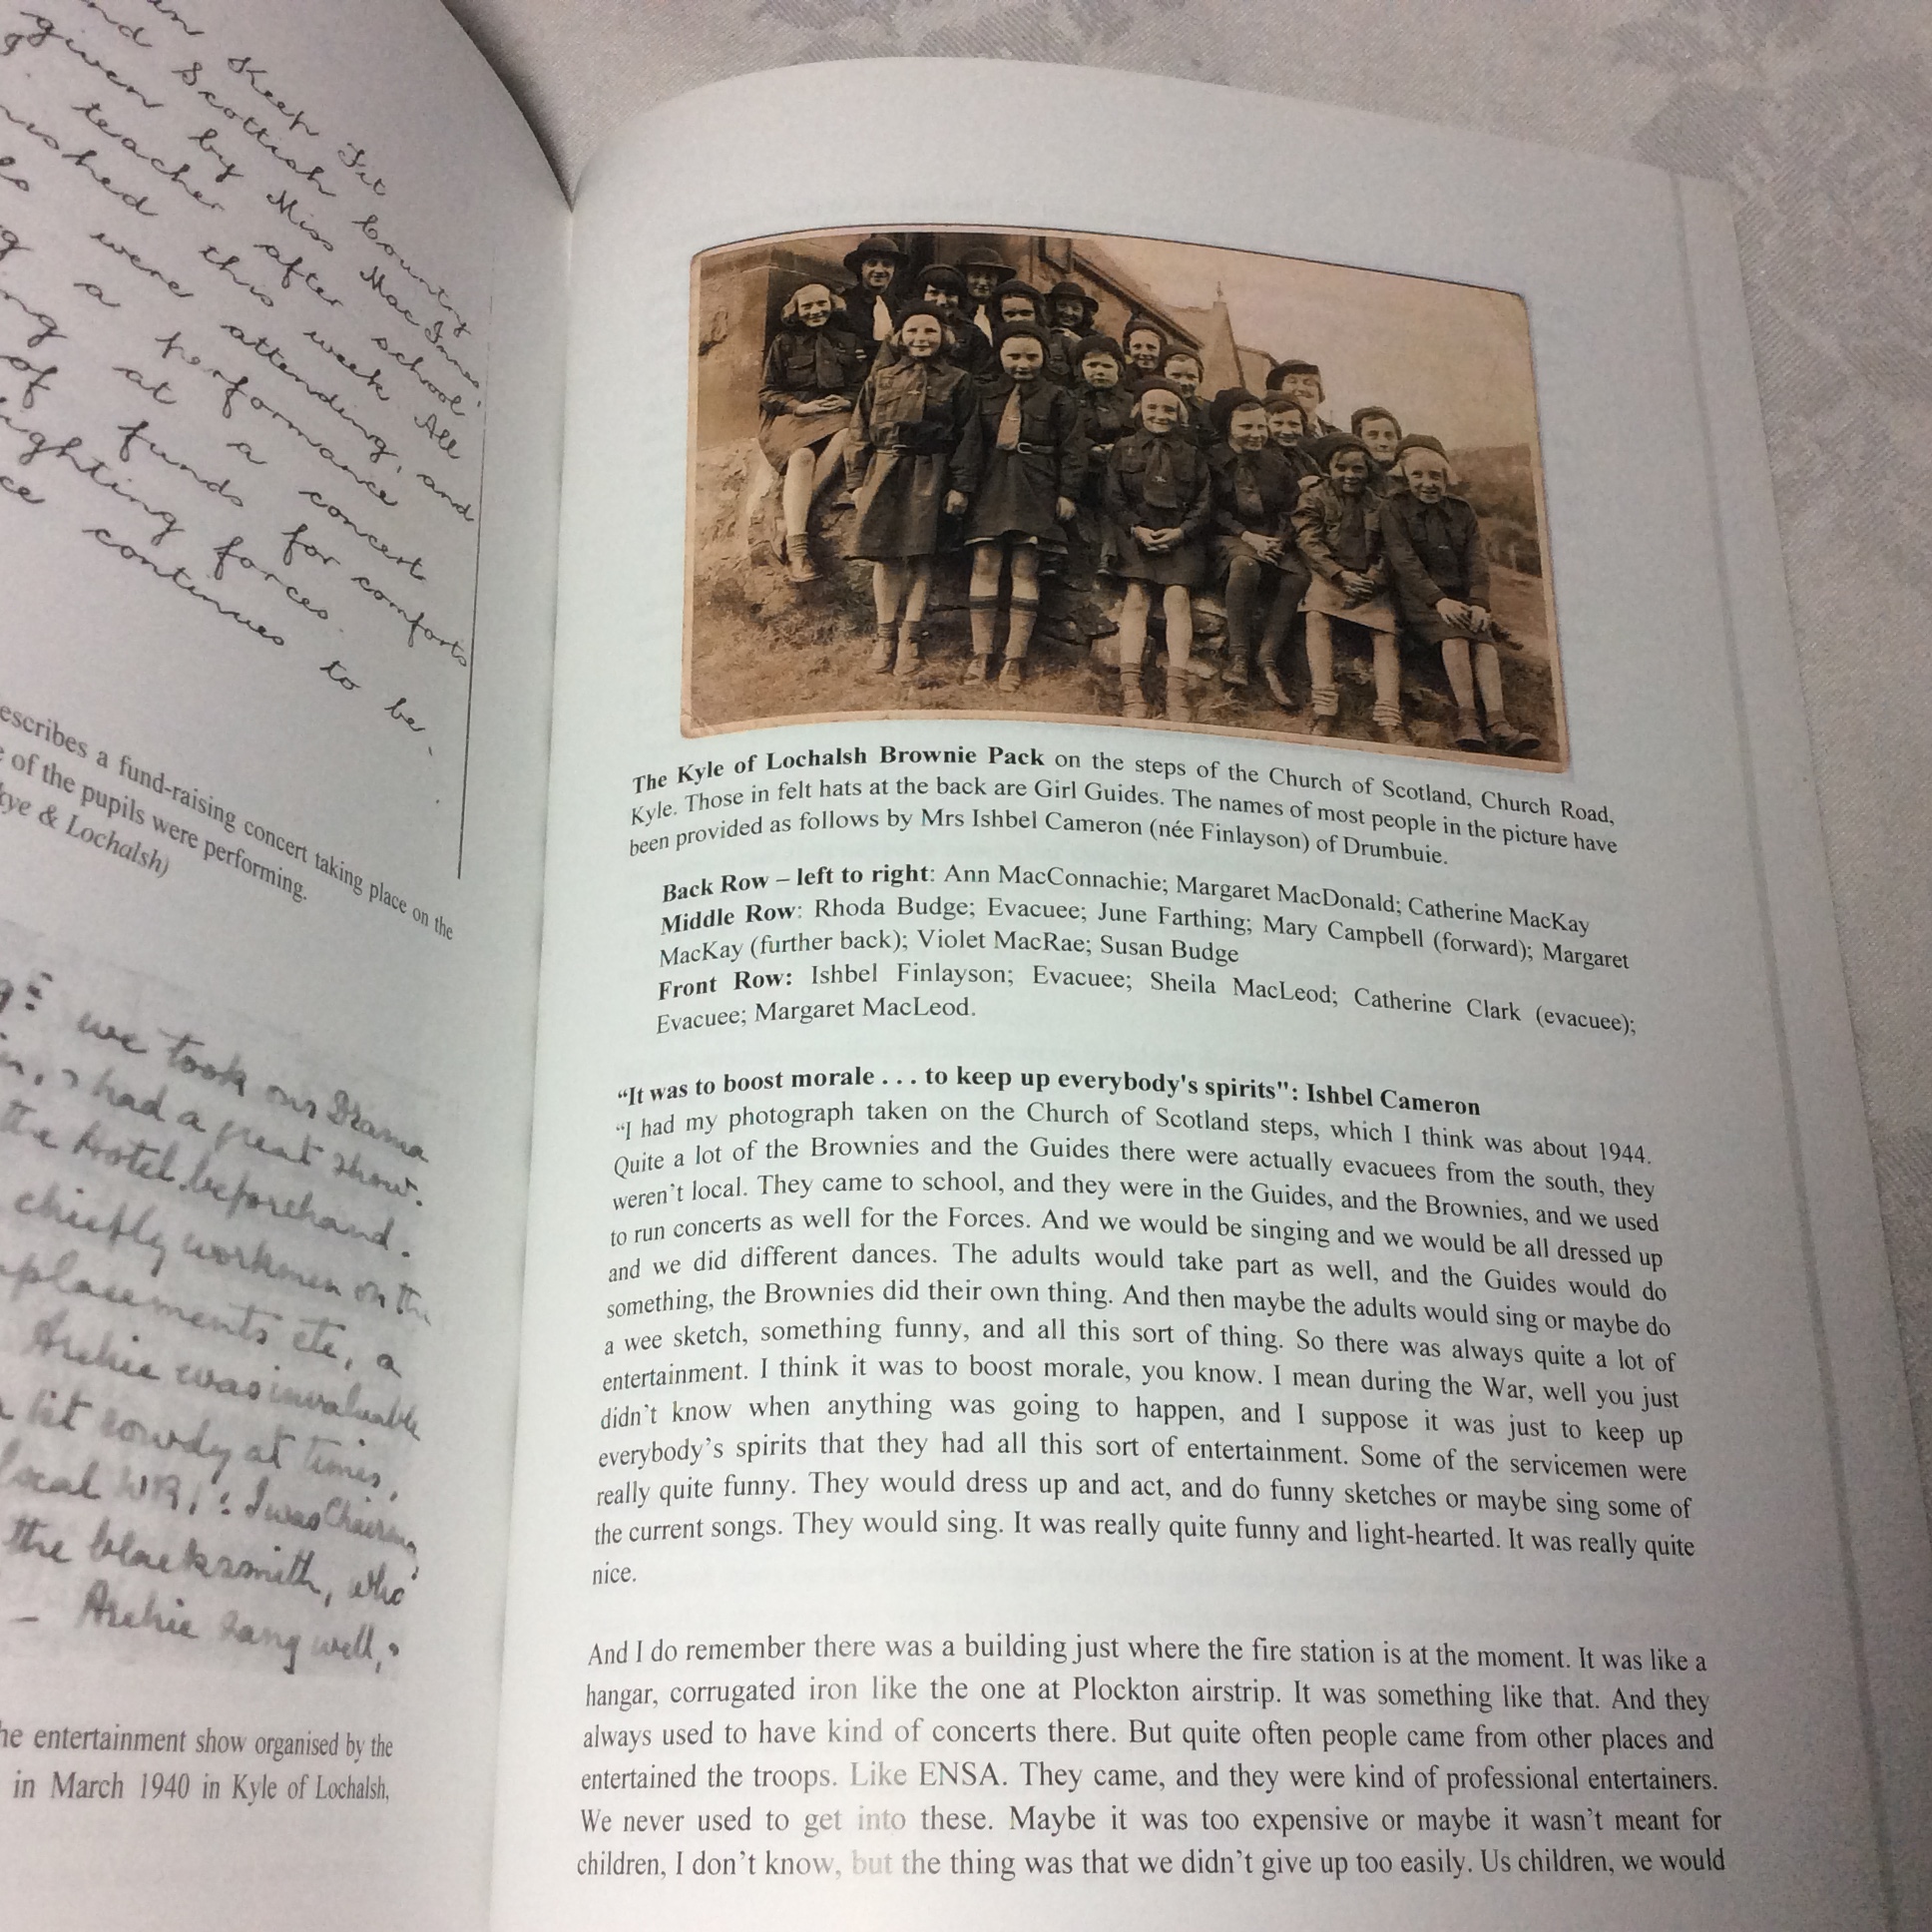 Keep Fit
nd Scottish Country
given by Miss MacInnes,
teacher after school
nished this week. All
were attending, and
a performance
ng at a concert
of funds for comforts
ighting forces.
ce continues to be
escribes a fund-raising concert taking place on the
e of the pupils were performing.
kye & Lochalsh)
we took our Drama
in, I had a great show.
the Hotel beforehand.
chiefly workmen on the
placements etc, a
Archie was invaluable
a bit rowdy at times,
local WRI.
the blacksmith, who
– Archie sang well,
he entertainment show organised by the
in March 1940 in Kyle of Lochalsh,
The Kyle of Lochalsh Brownie Pack on the steps of the Church of Scotland, Church Road,
Kyle. Those in felt hats at the back are Girl Guides. The names of most people in the picture have
been provided as follows by Mrs Ishbel Cameron (née Finlayson) of Drumbuie.
Back Row – left to right: Ann MacConnachie; Margaret MacDonald; Catherine MacKay
Middle Row: Rhoda Budge; Evacuee; June Farthing; Mary Campbell (forward); Margaret
MacKay (further back); Violet MacRae; Susan Budge
Front Row: Ishbel Finlayson; Evacuee; Sheila MacLeod; Catherine Clark (evacuee);
Evacuee; Margaret MacLeod.
“It was to boost morale . . . to keep up everybody's spirits": Ishbel Cameron
“I had my photograph taken on the Church of Scotland steps, which I think was about 1944.
Quite a lot of the Brownies and the Guides there were actually evacuees from the south, they
weren’t local. They came to school, and they were in the Guides, and the Brownies, and we used
to run concerts as well for the Forces. And we would be singing and we would be all dressed up
and we did different dances. The adults would take part as well, and the Guides would do
something, the Brownies did their own thing. And then maybe the adults would sing or maybe do
a wee sketch, something funny, and all this sort of thing. So there was always quite a lot of
entertainment. I think it was to boost morale, you know. I mean during the War, well you just
didn’t know when anything was going to happen, and I suppose it was just to keep up
everybody’s spirits that they had all this sort of entertainment. Some of the servicemen were
really quite funny. They would dress up and act, and do funny sketches or maybe sing some of
the current songs. They would sing. It was really quite funny and light-hearted. It was really quite
nice.
And I do remember there was a building just where the fire station is at the moment. It was like a
hangar, corrugated iron like the one at Plockton airstrip. It was something like that. And they
always used to have kind of concerts there. But quite often people came from other places and
entertained the troops. Like ENSA. They came, and they were kind of professional entertainers.
We never used to get into these. Maybe it was too expensive or maybe it wasn’t meant for
children, I don’t know, but the thing was that we didn’t give up too easily. Us children, we would